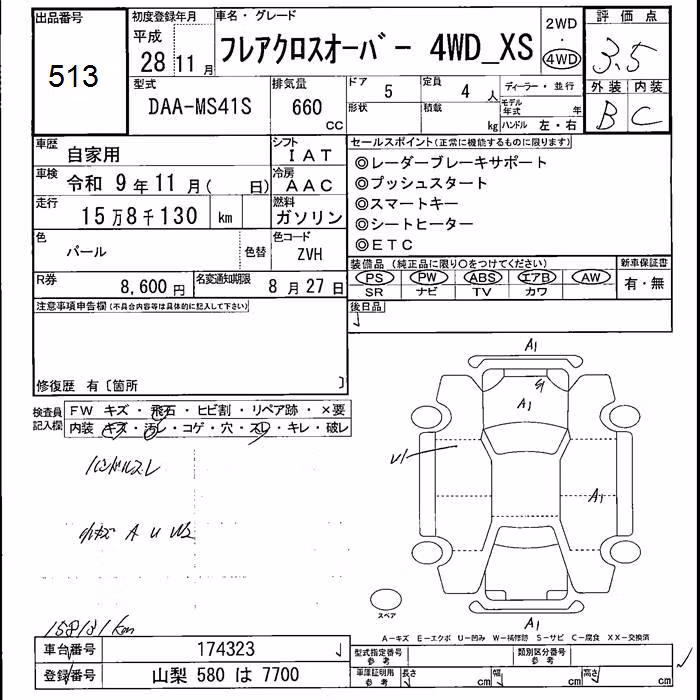 出品番号
513
初度登録年月
平成
28 11 月
車名・グレード
フレアクロスオーバー 4WD_XS
2WD
・
4WD
評価点
3.5
外装 内装
B C
型式
DAA-MS41S
排気量
660
CC
ドア
5
定員
4 人
形状
積載
kg
ディーラー・並行
モデル年式 年
ハンドル 左・右
車歴
自家用
シフト
IAT
車検
令和 9 年 11 月( 日)
冷房
AAC
走行
15 万 8 千 130 km
燃料
ガソリン
色
パール
色替
色コード
ZVH
R券
8,600 円
名変通知期限
8 月 27 日
セールスポイント(正常に機能するものに限ります)
◎レーダーブレーキサポート
◎プッシュスタート
◎スマートキー
◎シートヒーター
◎ETC
装備品(純正品に限り○をつけてください)
PS PW ABS エアB AW
SR ナビ TV カワ
新車保証書
有・無
後日品
注意事項申告欄(不具合内容等は具体的に記入して下さい)
修復歴 有〔箇所 〕
検査員記入欄
FW キズ・飛石・ヒビ割・リペア跡・×要
内装 キズ・汚レ・コゲ・穴・スレ・キレ・破レ
ハンドルスレ
小キズ A U W2
158131km
A1
A1
U1
A1
A1
スペア
A-キズ E-エクボ U-凹み W-補修跡 S-サビ C-腐食 XX-交換済
車台番号
174323
登録番号
山梨 580 は 7700
型式指定番号
参考
類別区分番号
参考
車庫証明用
参考
長さ cm 幅 cm 高さ cm